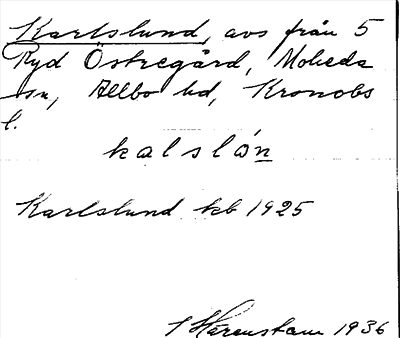 Karlslund, avs från 5
Ryd Östregård, Moheda
sn, Allbo hd, Kronobs
l.
kalslón
Karlslund kb 1925
Harenstam 1936